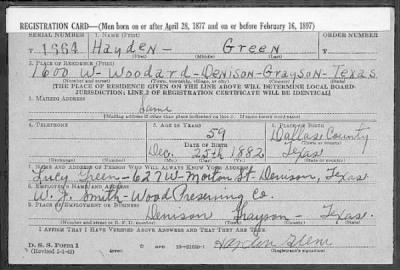 REGISTRATION CARD—(Men born on or after April 28, 1877 and on or before February 16, 1897)
SERIAL NUMBER 1. NAME (Print) ORDER NUMBER
U 1664 Hayden - Green
(First) (Middle) (Last)
2. PLACE OF RESIDENCE (Print)
1600 W- Woodard- Denison- Grayson- Texas
(Number and street) (Town, township, village, or city) (County) (State)
[THE PLACE OF RESIDENCE GIVEN ON THE LINE ABOVE WILL DETERMINE LOCAL BOARD
JURISDICTION; LINE 2 OF REGISTRATION CERTIFICATE WILL BE IDENTICAL]
3. MAILING ADDRESS
Same
[Mailing address if other than place indicated on line 2. If same insert word same]
4. TELEPHONE 5. AGE IN YEARS 6. PLACE OF BIRTH
59 Dallas County
DATE OF BIRTH (Town or county)
Dec. 25th 1882 Texas
(Exchange) (Number) (Mo.) (Day) (Yr.) (State or country)
7. NAME AND ADDRESS OF PERSON WHO WILL ALWAYS KNOW YOUR ADDRESS
Lucy Green- 627 W- Morton St- Denison, Texas
8. EMPLOYER'S NAME AND ADDRESS
W. J. Smith- Wood Preserving Co.
9. PLACE OF EMPLOYMENT OR BUSINESS
Denison Grayson- Texas.
(Number and street or R. F. D. number) (Town) (County) (State)
I AFFIRM THAT I HAVE VERIFIED ABOVE ANSWERS AND THAT THEY ARE TRUE.
D. S. S. Form 1 Hayden Green
(Revised 4-1-42) (over) (Registrant's signature)